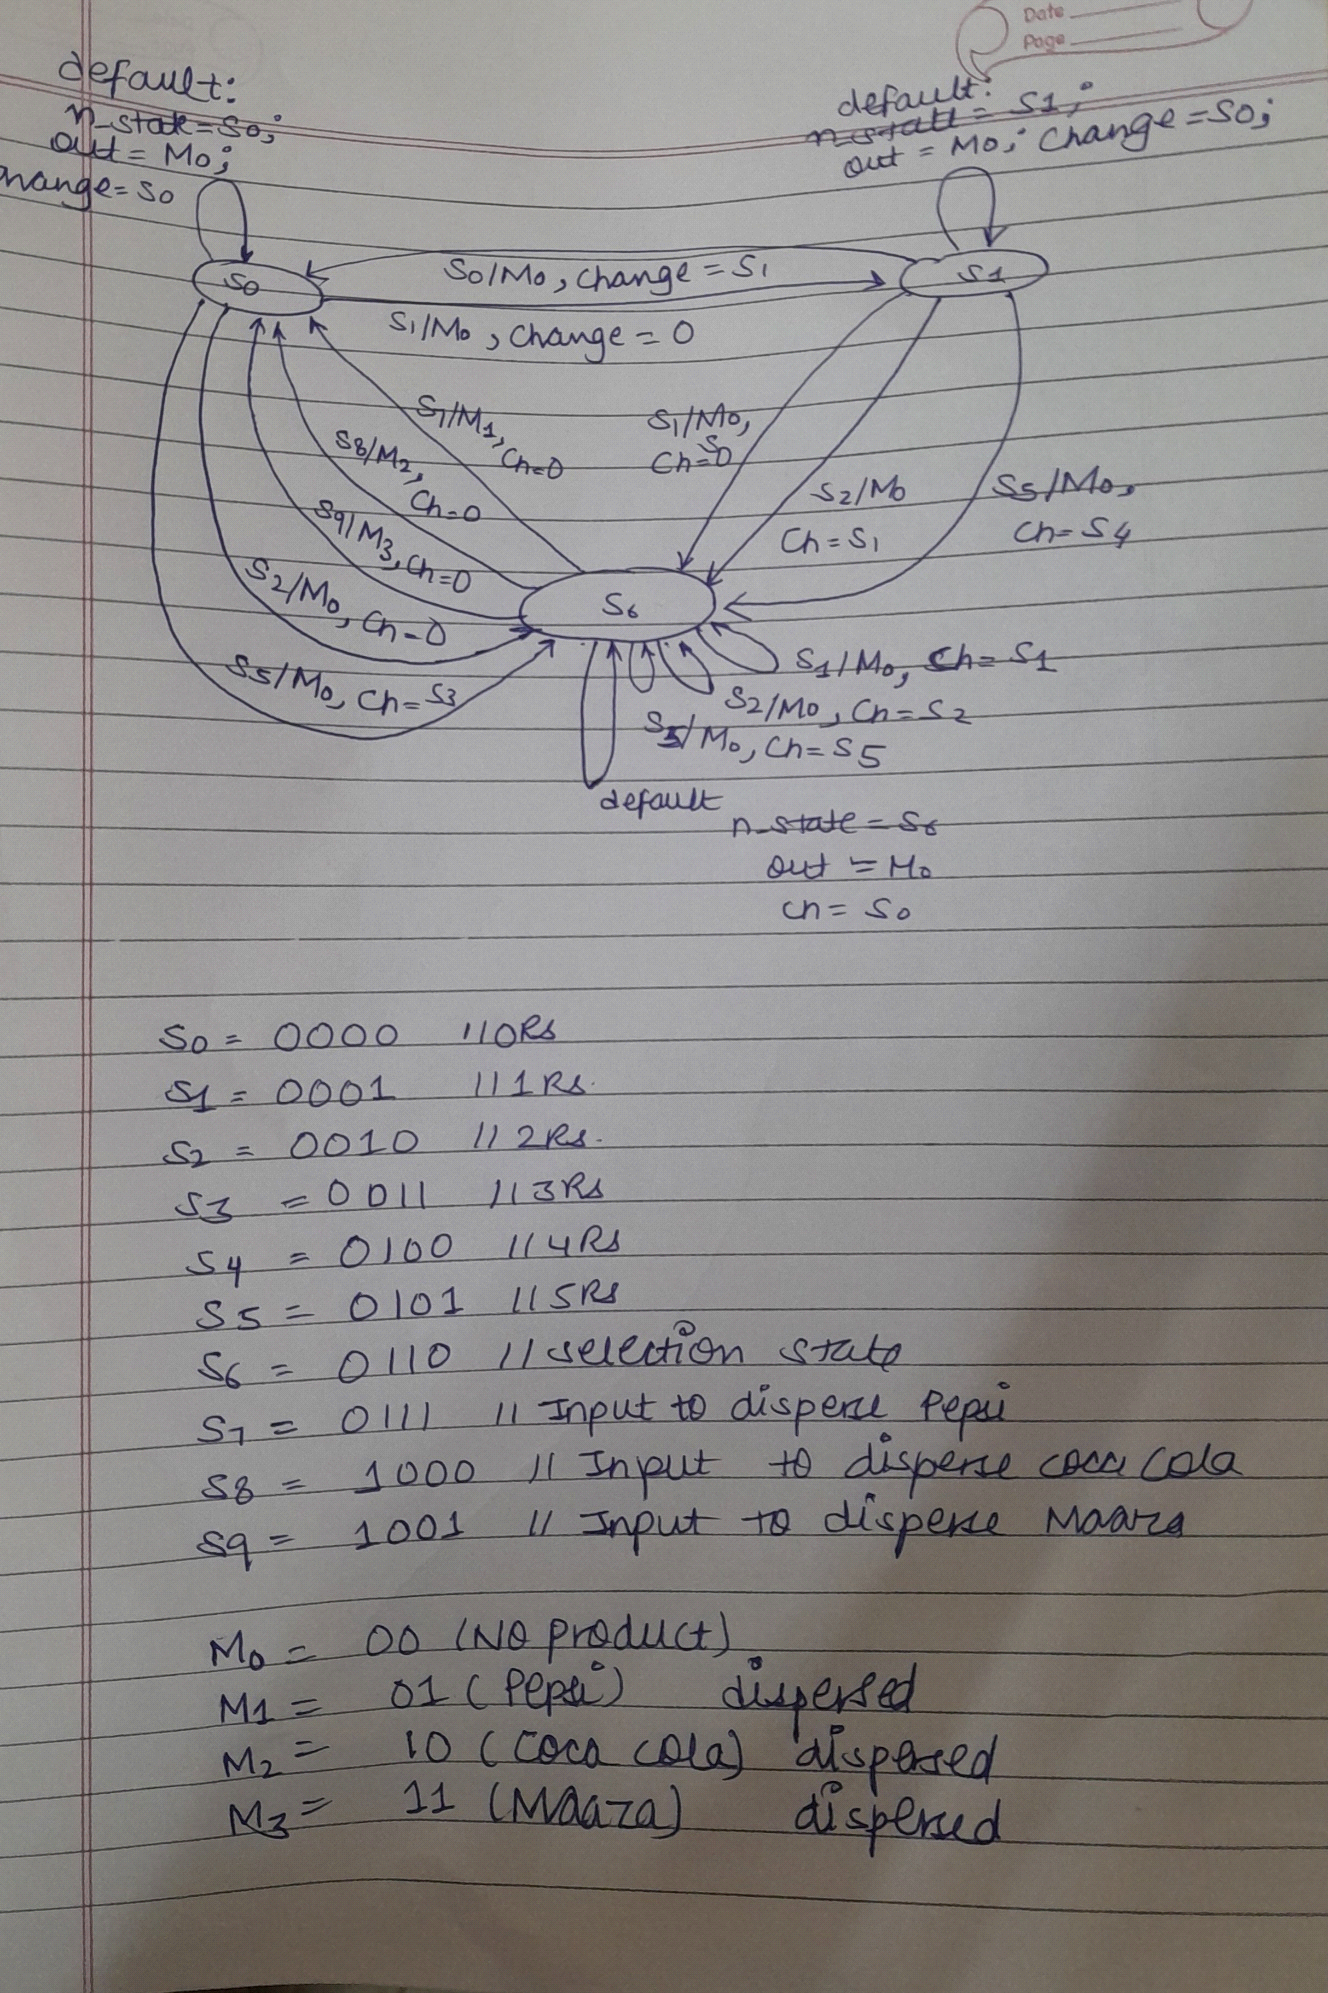 Date
Page
default:
n_state = S0;
out = M0;
hange = S0
default:
n_state = S1;
out = M0; Change = S0;
S0
S1
S0/M0, change = S1
S1/M0, change = 0
S7/M1,
Ch=0
S8/M2,
Ch=0
S9/M3, Ch=0
S2/M0, Ch=0
S5/M0, Ch=S3
S1/M0,
Ch=0
S0
S2/M0
Ch=S1
S5/M0,
Ch=S4
S6
S1/M0, Ch=S1
S2/M0, Ch=S2
S5/M0, Ch=S5
default
n_state = S6
out = M0
Ch = S0
S0 = 0000 //0Rs
S1 = 0001 //1Rs.
S2 = 0010 //2Rs.
S3 = 0011 //3Rs
S4 = 0100 //4Rs
S5 = 0101 //5Rs
S6 = 0110 //selection state
S7 = 0111 // Input to disperse Pepsi
S8 = 1000 // Input to disperse coca cola
S9 = 1001 // Input to disperse Maaza
M0 = 00 (No product)
M1 = 01 (Pepsi) dispersed
M2 = 10 (Coca cola) dispersed
M3 = 11 (Maaza) dispersed